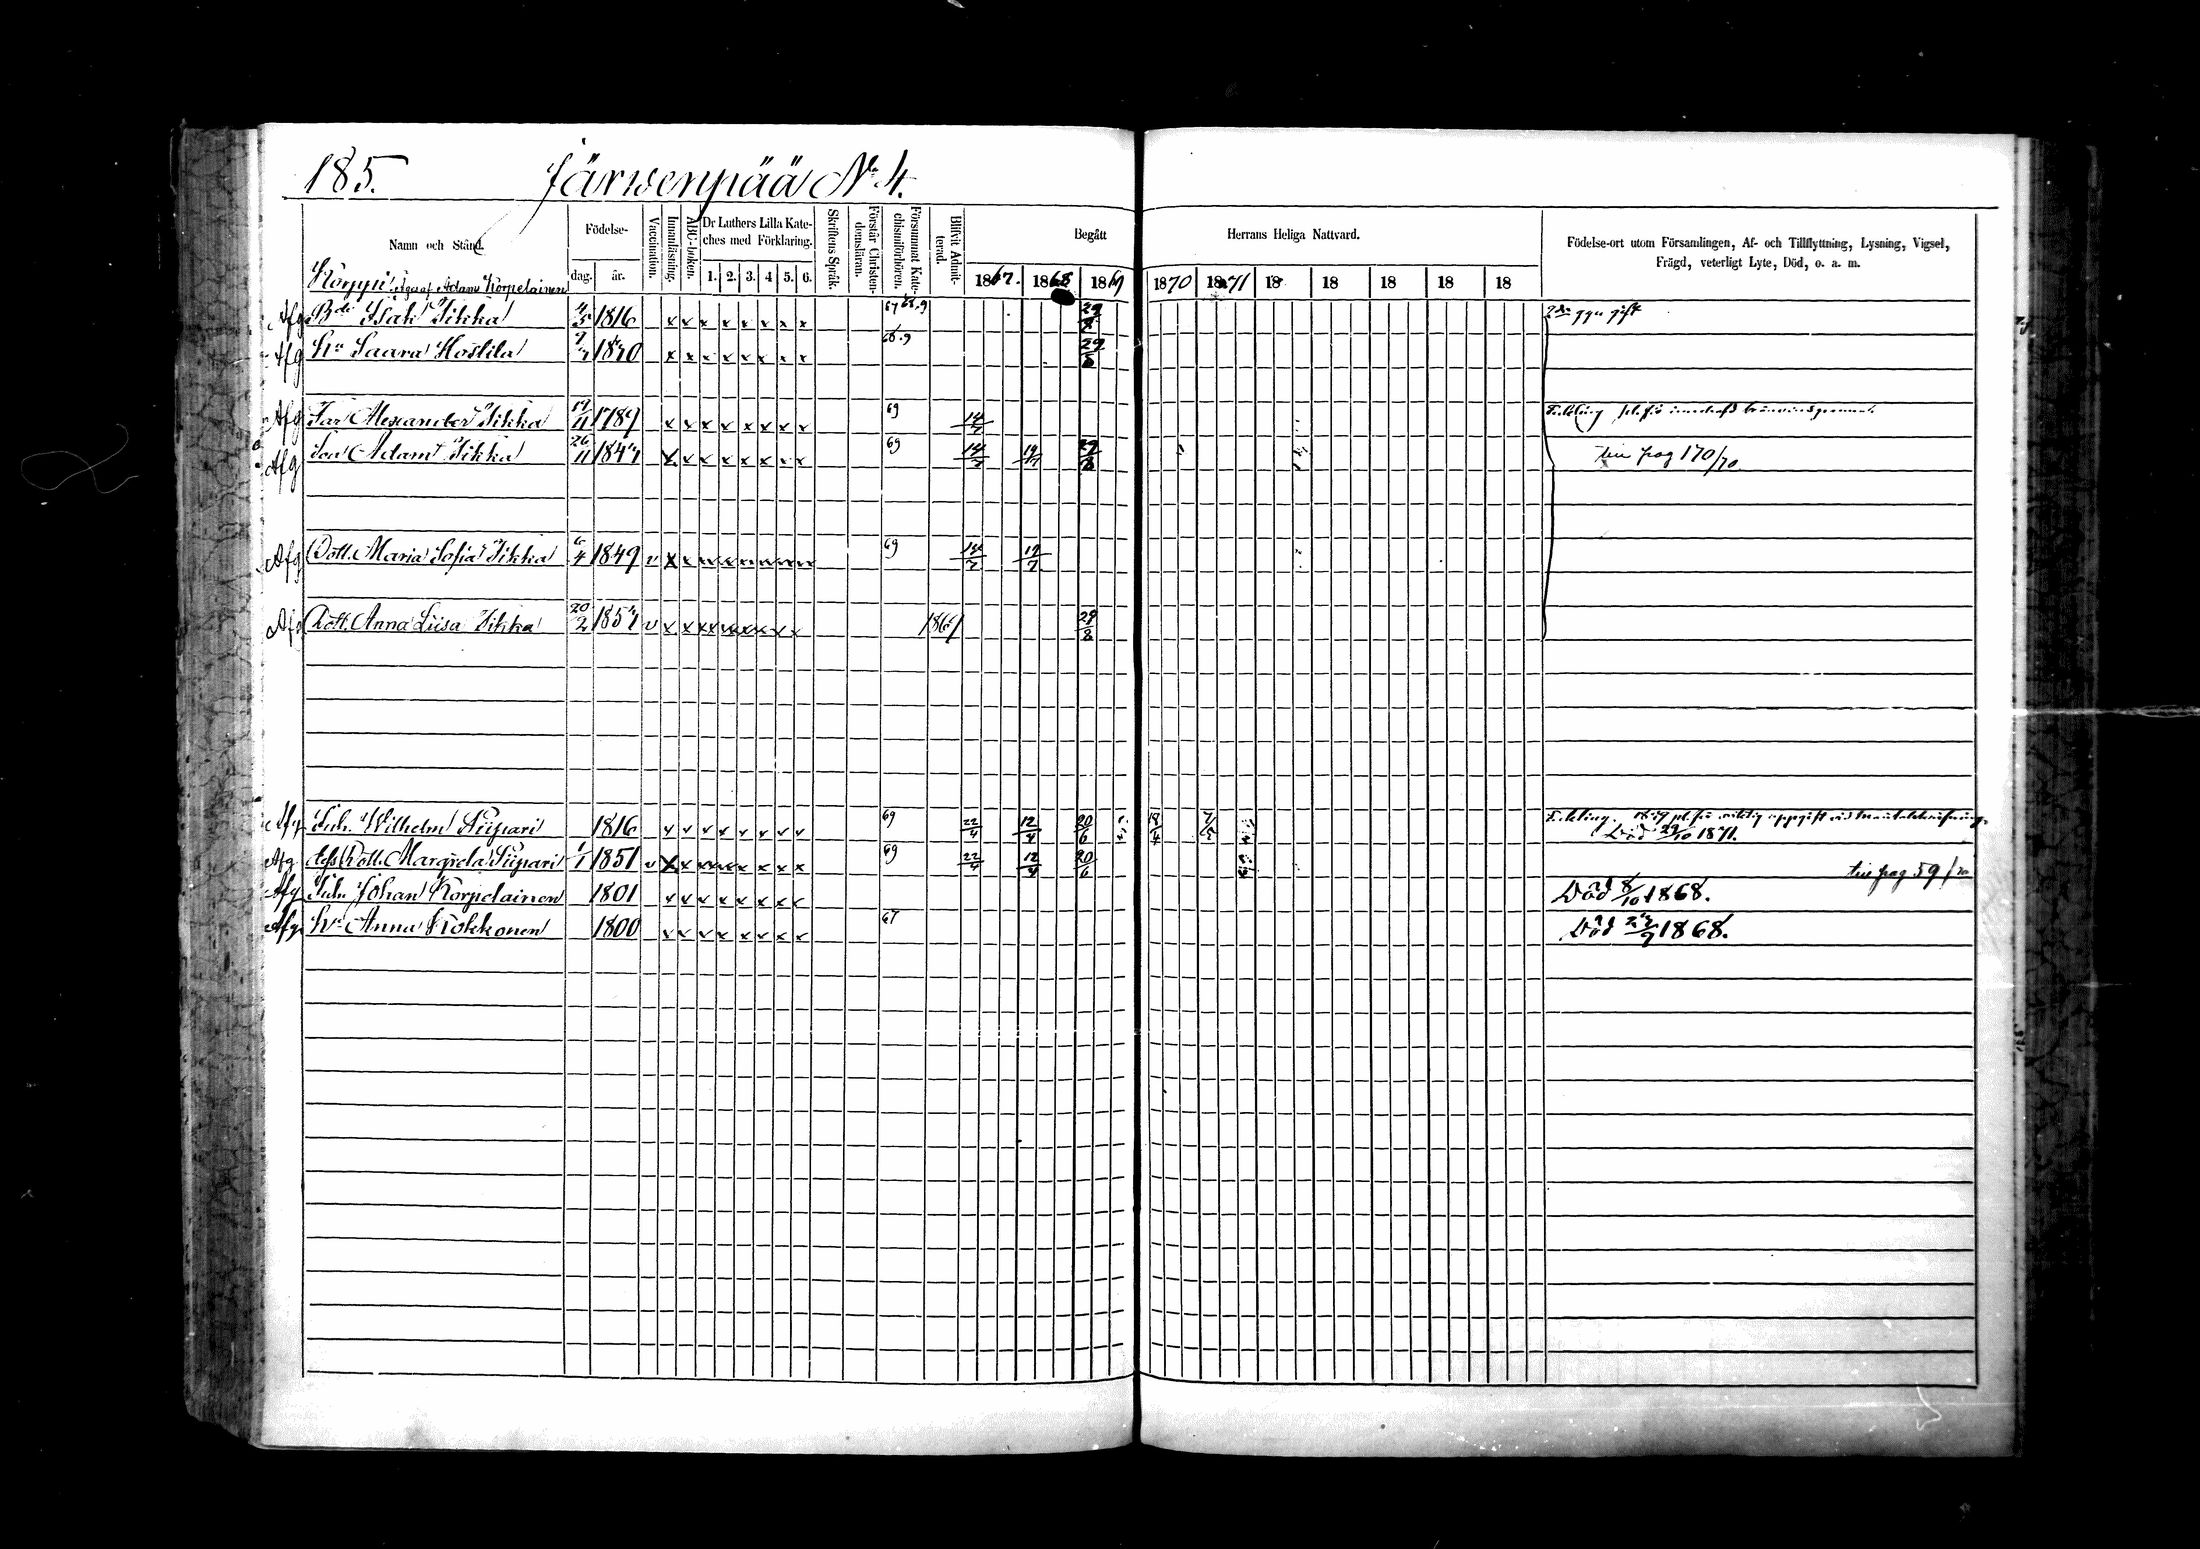 185. Järwenpää No 4.
Namn och Stånd.
Födelse-
dag. år.
Vaccination.
Innanläsning.
ABC-boken.
Dr Luthers Lilla Kate-
ches med Förklaring.
1. 2. 3. 4 5. 6.
Skriftens Språk.
Förstår Christen-
domsläran.
Försummat Kate-
chismiförhören.
Blifvit Admit-
terad.
Begått Herrans Heliga Nattvard.
1867. 1868 1869 1870 1871 18 18 18 18 18
Födelse-ort utom Församlingen, Af- och Tillflyttning, Lysning, Vigsel,
Frägd, veterligt Lyte, Död, o. a. m.
Körppi Adam Korpelainen
Afg Isak Tikka 4/5 1816 x x x x x x x x 67 68.9 29/8
Afg Hu Saara Hostila x x x x x x x x 68.9 29/8
Afg Far Alexander Tikka 19/11 1789 x x x x x x x x 69 14/7
Afg Son Adam Tikka 26/11 1844 x x x x x x x x 69 14/7 19/7 29/8
pag 170/70
Afg Dott. Maria Sofia Tikka 6/4 1849 v 69 14/7 19/7
Dott. Anna Liisa Tikka 20/2 v 1869 29/8
Afg Inh. Wilhelm Siipari 1816 69 22/4 12/4 20/6 18/4
Död 29/10 1871.
Afg Dott. Margeta Siipari 1/1 1851 v 69 22/4 12/4 20/6
pag 59/70
Afg Inh. Johan Korpelainen 1801 x x x x x x x x Död 8/10 1868.
Afg Hu Anna Kokkonen 1800 67 Död 1868.